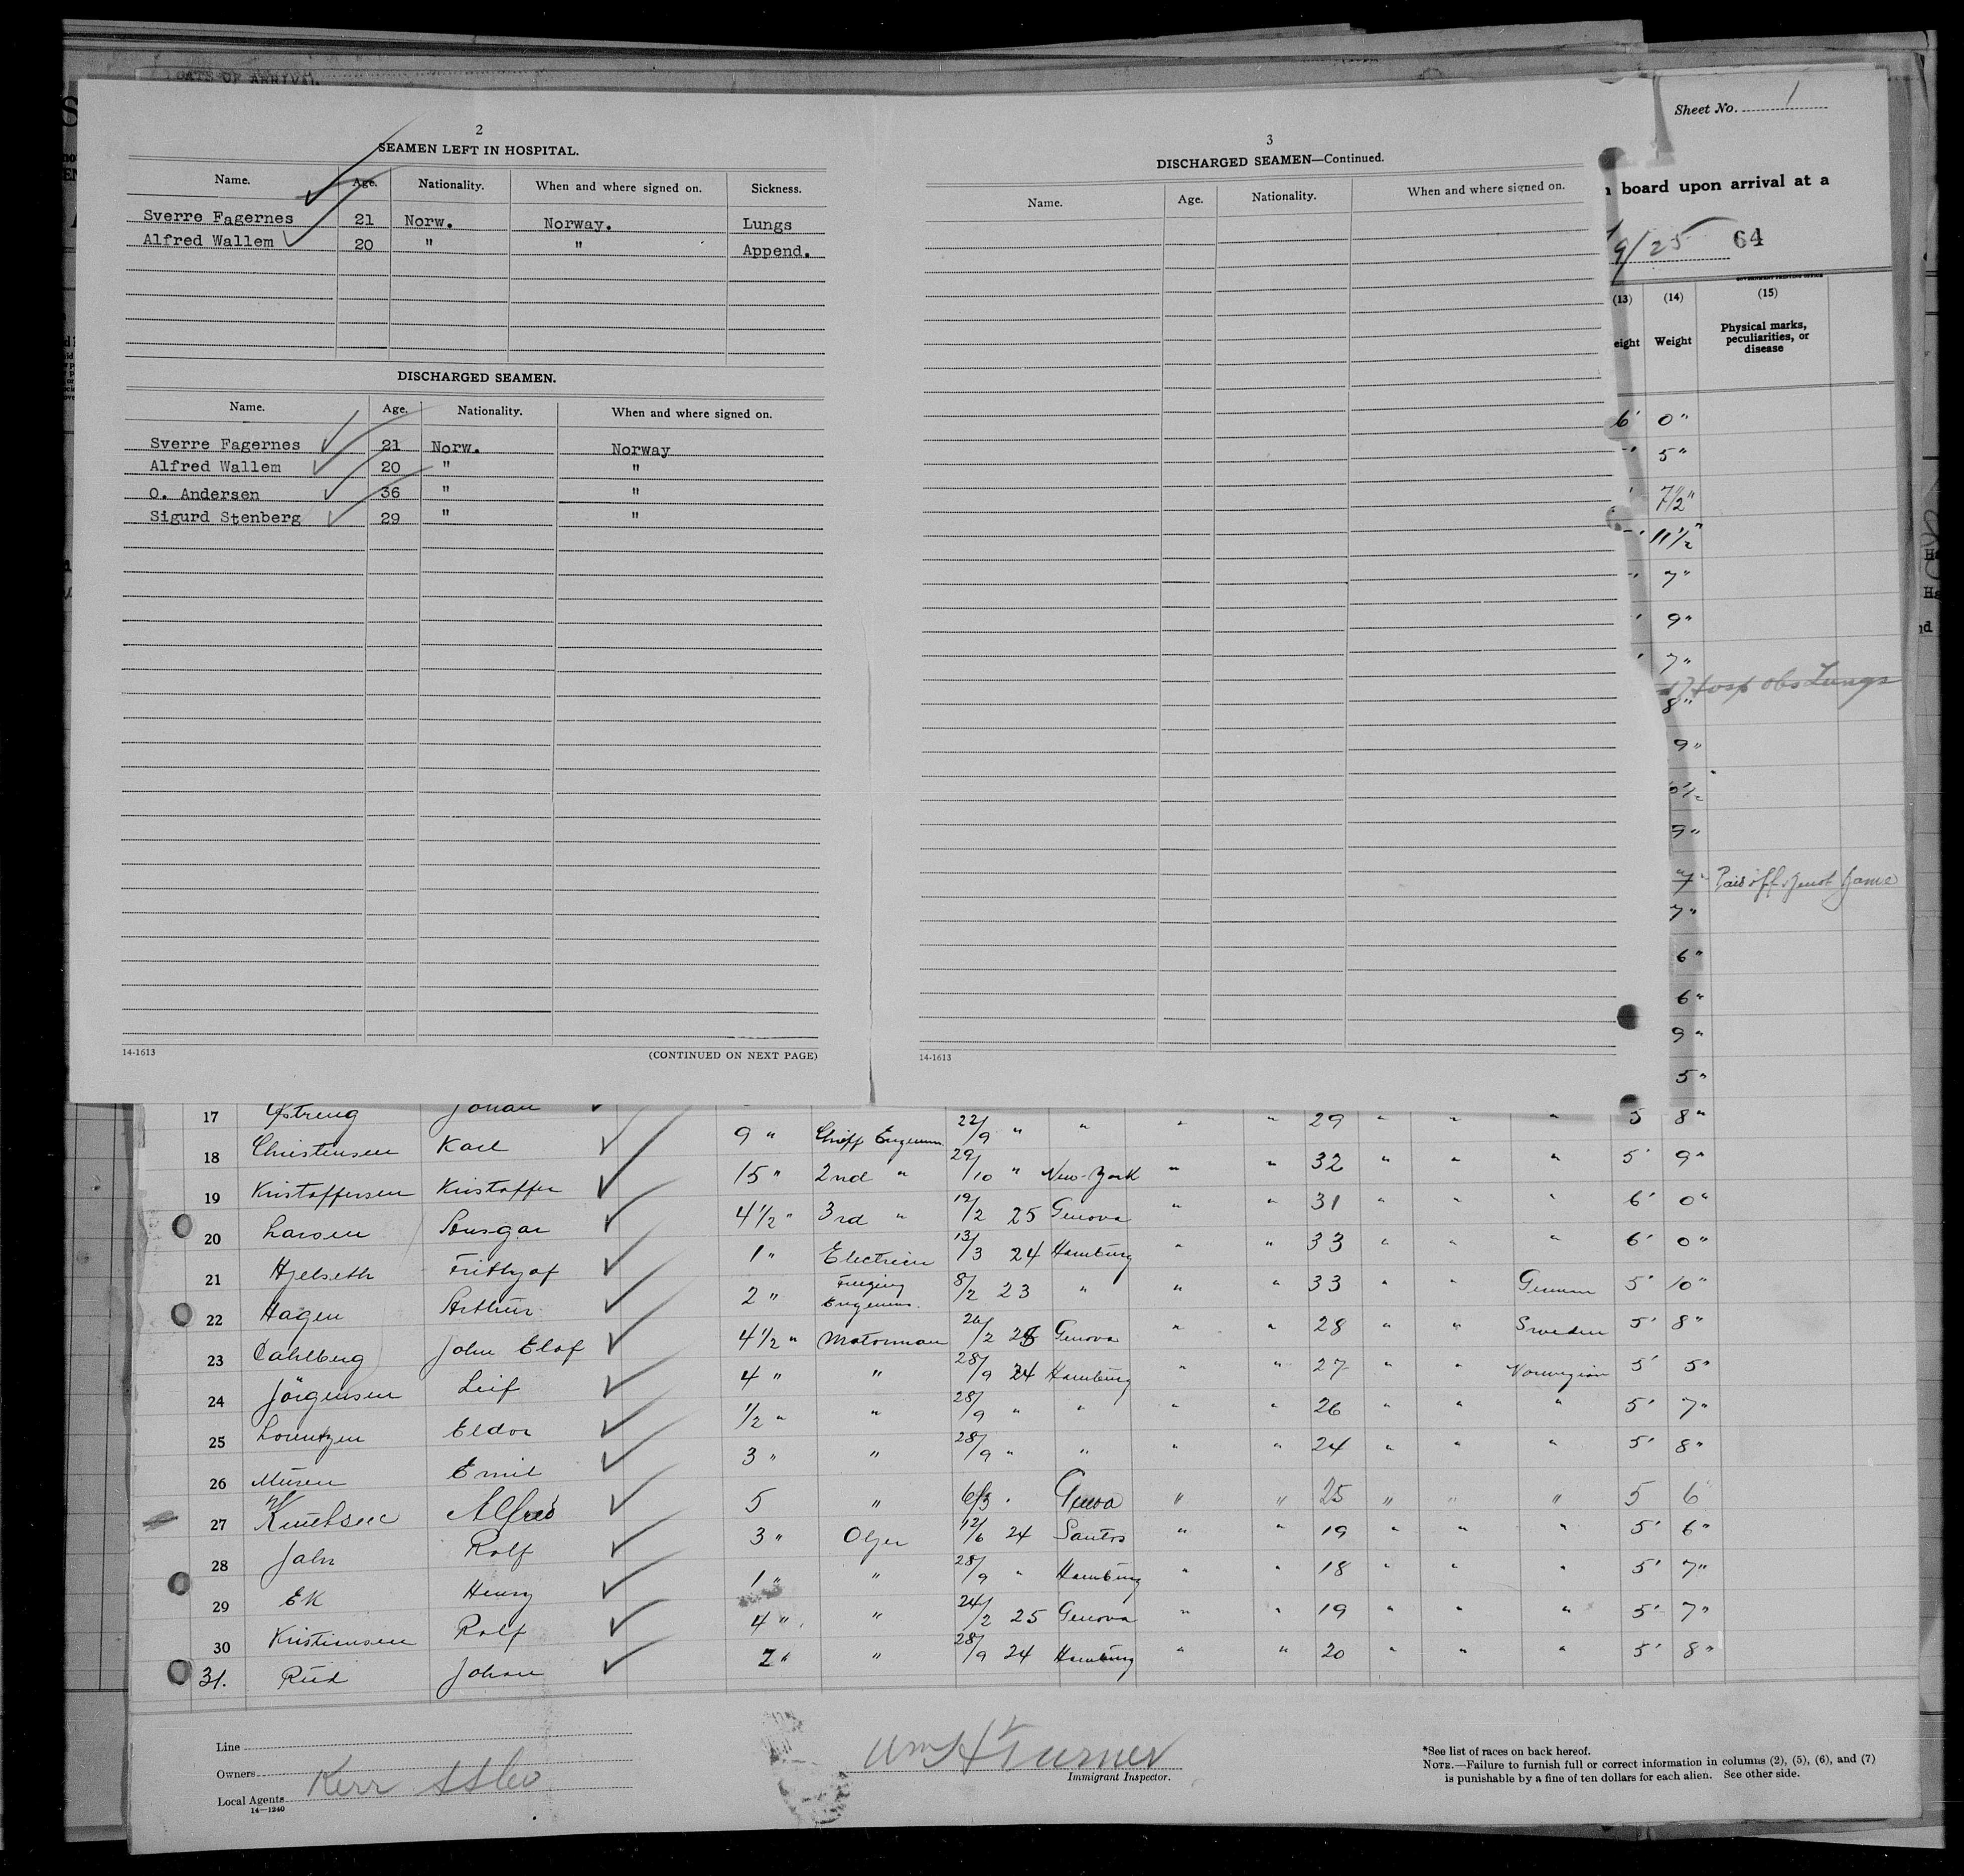 DATE OF ARRIVAL
Sheet No. 1
board upon arrival at a
9/25 64
2
SEAMEN LEFT IN HOSPITAL.
Name. Age. Nationality. When and where signed on. Sickness.
Sverre Fagernes 21 Norw. Norway. Lungs
Alfred Wallem 20 " " Append.
DISCHARGED SEAMEN.
Name. Age. Nationality. When and where signed on.
Sverre Fagernes 21 Norw. Norway
Alfred Wallem 20 " "
O. Andersen 36 " "
Sigurd Stenberg 29 " "
14-1613 (CONTINUED ON NEXT PAGE)
3
DISCHARGED SEAMEN—Continued.
Name. Age. Nationality. When and where signed on.
14-1613
(13) (14) (15)
eight Weight Physical marks, peculiarities, or disease
6' 0"
5"
7 1/2"
11 1/2"
7"
9"
7"
Hosp obs Lungs
8"
9"
9"
7"
7"
6"
6"
9"
5"
17 Johan 5 8"
18 Christensen Karl 9 " Chieff 22/9 " " " " 29 " " " 5' 9"
19 Kristoffersen Kristoffer 15 " 2nd " 29/10 " New-York " " 32 " " " 6' 0"
20 Larsen Ansgar 4 1/2 " 3rd " 19/2 25 Genova " " 31 " " " 6' 0"
21 Hjelseth Frithjof 1 " Electrien 13/3 24 Hamburg " " 33 " " " 5' 10"
22 Hagen Arthur 2 " 8/2 23 " " " 33 " " German 5' 8"
23 Dahlberg John Elof 4 1/2 " Motorman 2 Genova " " 28 " " Sweden 5' 5"
24 Jörgensen Leif 4 " " 28/9 24 Hamburg " " 27 " " Norwegian 5' 7"
25 Lorentzen Eldor 1/2 " " 28/9 " " " " 26 " " " 5' 8"
26 Emil 3 " " 28/9 " " " " 24 " " "
27 Knutsen Alfred 5 " Genoa " " 25 " " " 5 6
28 Jahr Rolf 3 " Oljer 12/6 24 Santos " " 19 " " " 5' 6"
29 Ek Henry 1 " " 28/9 " Hamburg " " 18 " " " 5' 7"
30 Kristiansen Rolf 4 " " 24/2 25 Genova " " 19 " " " 5' 7"
31. Rud Johan 2 " " 28/9 24 Hamburg " " 20 " " " 5' 8"
Line
Owners
Local Agents Kerr SS Co
14—1240
Wm H Turner
Immigrant Inspector.
*See list of races on back hereof.
NOTE.—Failure to furnish full or correct information in columns (2), (5), (6), and (7)
is punishable by a fine of ten dollars for each alien. See other side.